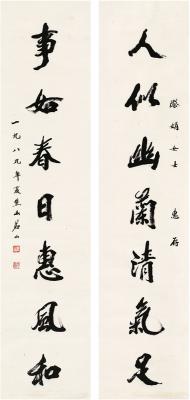 人似幽蘭清氣足
女士 惠存
事如春日惠風和
一九八九年夏